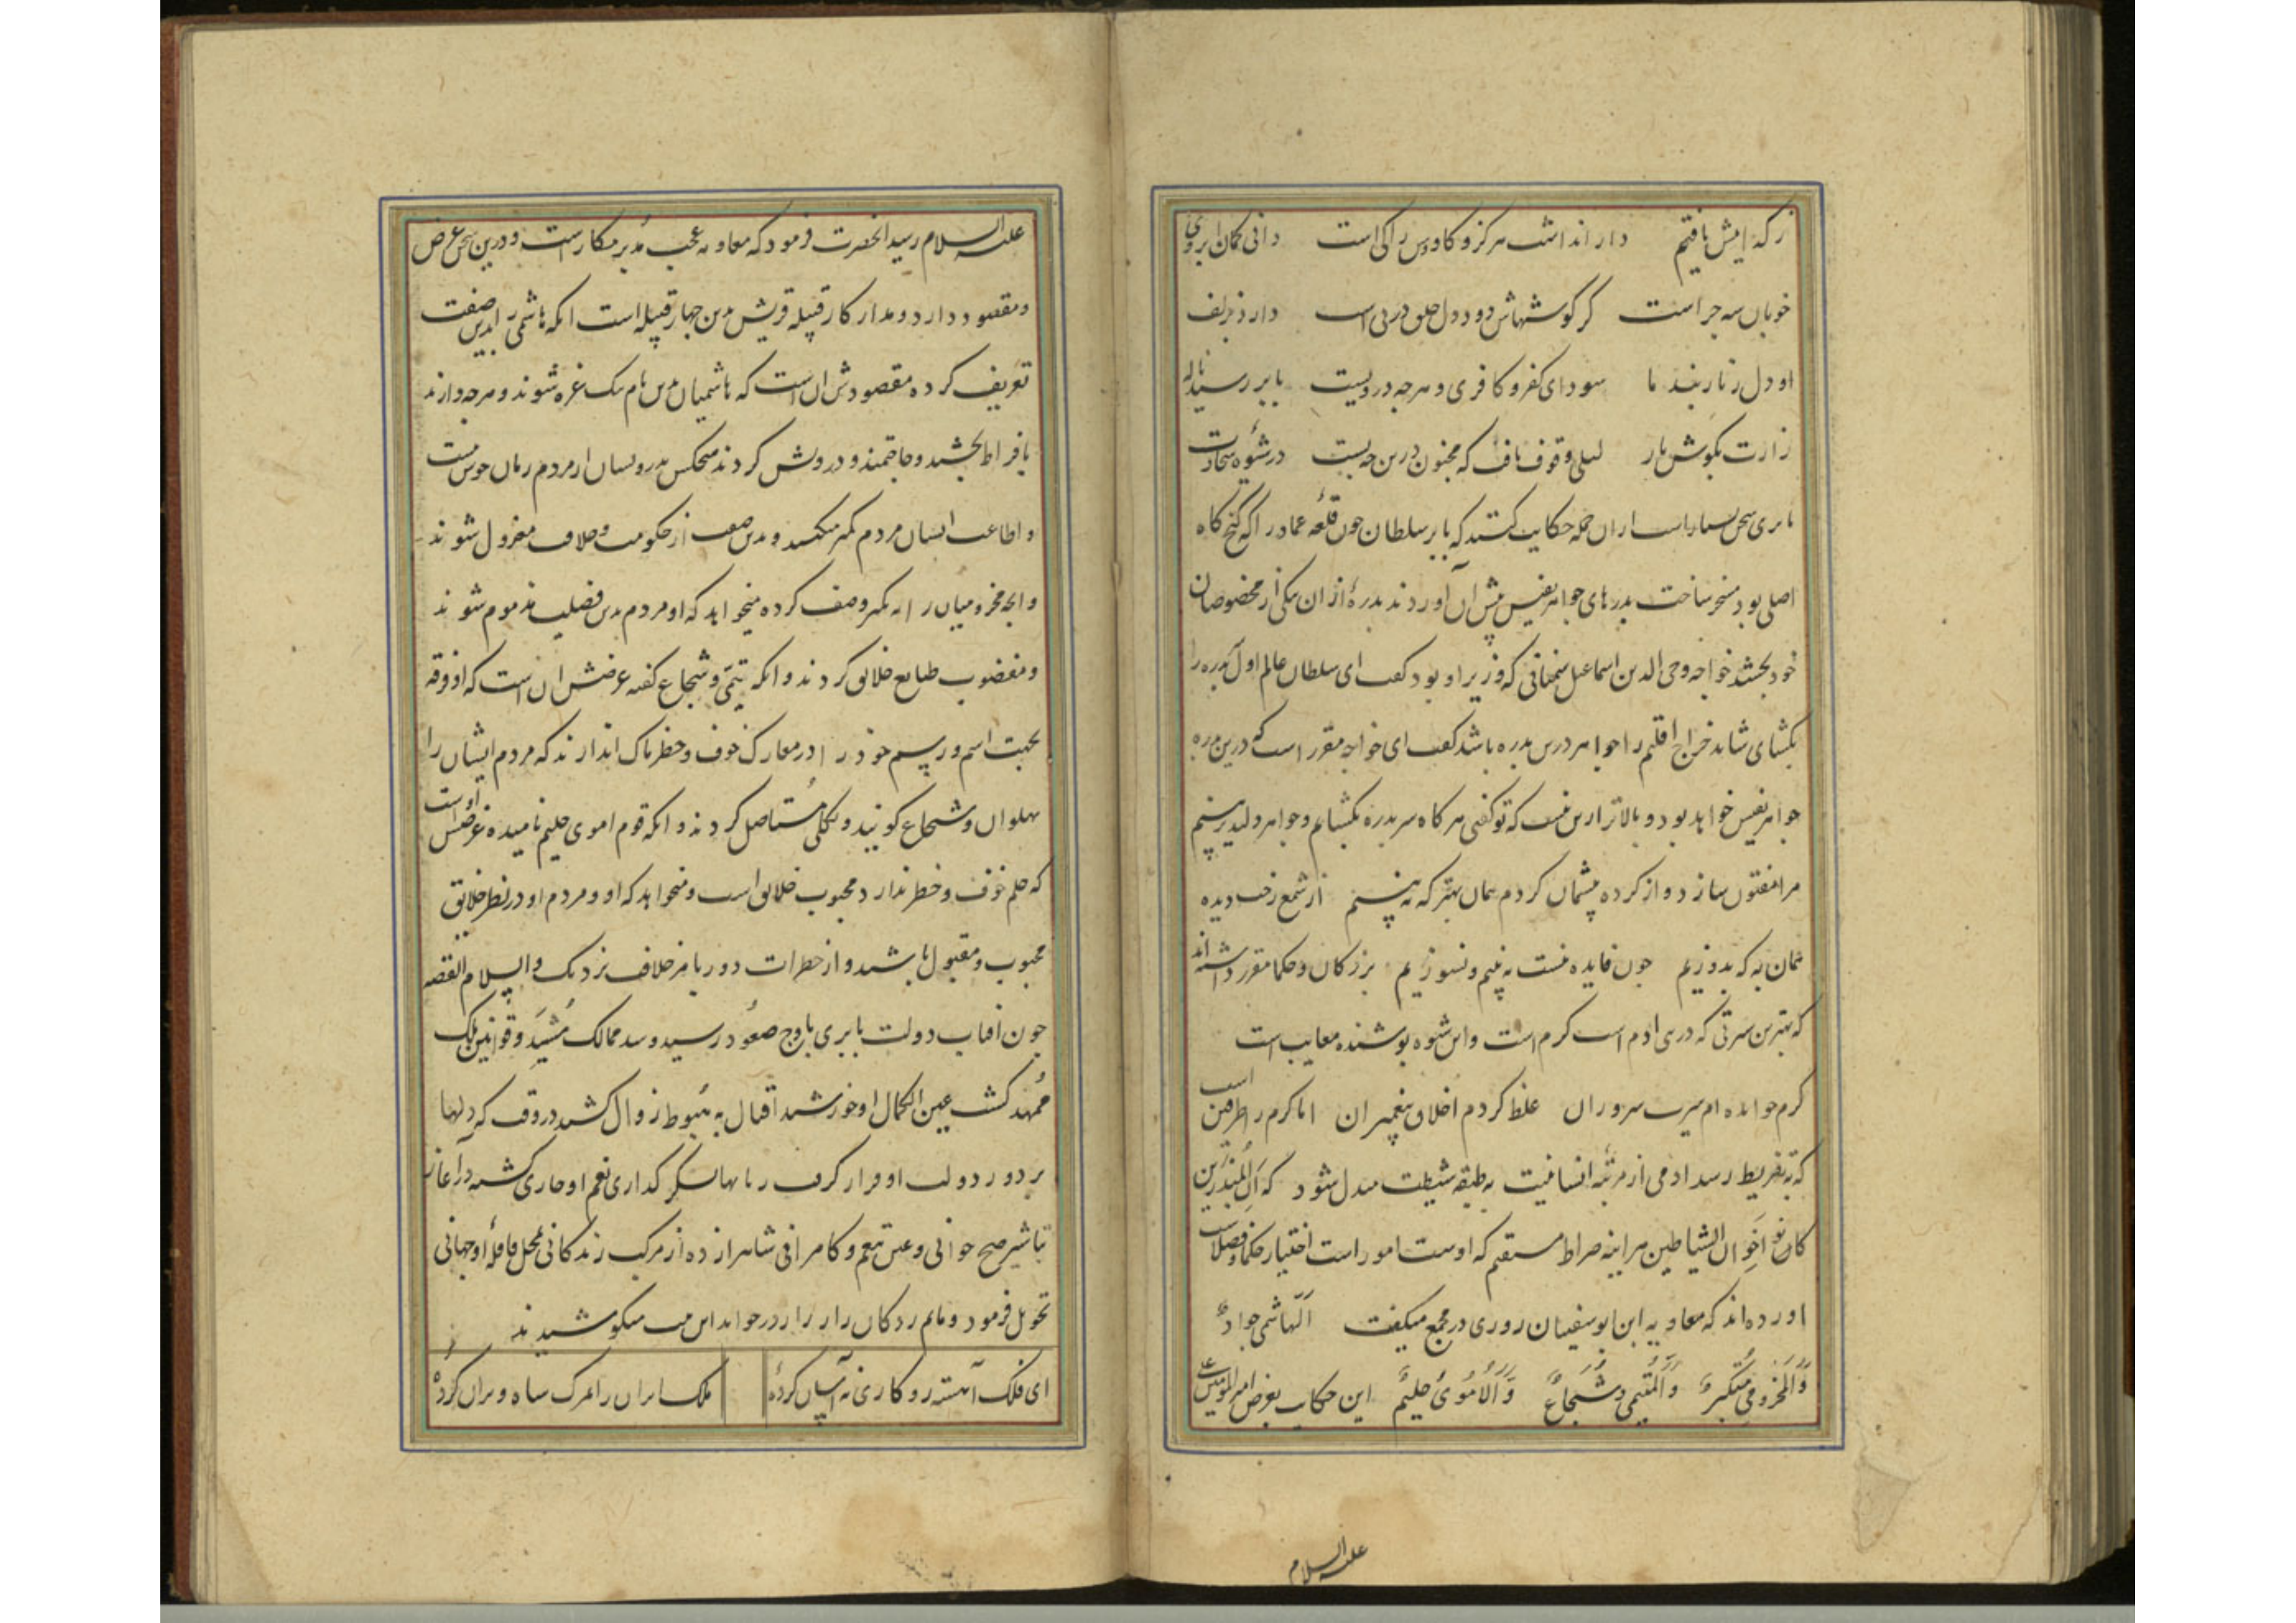 زر که ایش یافتیم دارا نداشت هرگز و کاوس را کی است دانی کمان ابروی
خوبان سیه چراست کز گوشهاش دود دل خلق در پی است دارد بزلف
او دل زنار بند ما سودای کفر و کافری و هرچه در ویست بابر رسید ناله
زارت بگوش یار لیلی وقوف یافت که مجنون درین حی است در شیوه سخاوت
بابری سخن بسیار است از ان جمله حکایت کنند که بابر سلطان چون قلعه عماد را که گنج گاه
اصلی بود مسخر ساخت بدرهای جواهر نفیس پیش آن آوردند بدرهٔ از ان بیکی از مخصوصان
خود بخشید خواجه وجی الدین اسماعیل سمنانی که وزیر او بود گفت ای سلطان عالم اول بدره را
بگشای شاید خراج اقلیم را جواهر درین بدره باشد گفت ای خواجه مقرر است که درین بدره
جواهر نفیس خواهد بود و بالاتر ازین نیست که تو گفتی هر گاه سر بدره بگشایم و جواهر دلپذیر ببینم
مرا مفتون سازد و از کرده پشیمان کردم همان بهتر که نه بینم از شمع رخت دیده
همان به که بدوزیم چون فایده نیست به بینم و نسوزیم بزرکان و حکما مقرر داشته اند
که بهترین سیرتی که در بنی ادم است کرم است و این شیوه پوشنده معایب است
کرم خوانده ام سیرت سروران غلط کردم اخلاق پیغمبران اما کرم را طرفین است
که به تفریط رسد ادمی از مرتبهٔ انسانیت به طبقه شیطنت مبدل شود که اِنَّ المُبَذِّرین
کانوا اِخوان الشیاطین هر اینه صراط مستقیم که اوست امور است اختیار حکما و فضلاست
اورده اند که معاویه ابن ابوسفیان روزی در مجمع میکفت اَلهاشمی جوادٌ
وَالمَخزومی مُتکبرٌ وَالتَیمی شُجاعٌ وَالاُمَویُ حلیمٌ این حکایت بعرض امیرالمومنین علی
علیه السلام
علیه السلام رسید انحضرت فرمود که معاویه عجب مدبر مکار است و درین سخن غرض
و مقصود دارد و مدار کار قبیله قریش بدین چهار قبیله است انکه هاشمی را بدین صفت
تعریف کرده مقصودش ان است که هاشمیان بدین نام نیک غره شوند و هرچه دارند
بافراط بخشند و حاجتمند و درویش کردند هیچکس بدرویشان از مردم زمان خوش نیست
و اطاعت ایشان مردم کمتر میکنند و بدین صفت از حکومت و خلافت معزول شوند
و انچه مخزومیان را به تکبر وصف کرده میخواهد که او مردم بدین فضلیت مذموم شوند
و مغضوب طبایع خلائق کردند و انکه تیمی و شجاع گفته غرضش ان است که از فرقه
بجهت اسم و رسم خود را در معارک خوف و خطرناک اندازند که مردم ایشان را
پهلوان و شجاع کویند و بکلی مُستاصل کردند و انکه قوم اموی حلیم نامیده غرضش آن است
که حلم خوف و خطر ندارد محبوب خلائق است و میخواهد که او و مردم او در نظر خلایق
محبوب و مقبول باشند و از خطرات دور و بامر خلافت نزدیک والسلام القصه
چون افتاب دولت بابری باوج صعود رسید و سد ممالک مُشیّد و قوانین ملک
مُمهّد کشت عین الکمال او خورشید اقبال به هُبوط زوال کشید در وقت که دلها
بر دور دولت او قرار کرفت و زبانها بشکر گذاری نعم او جاری کشته در آغاز
تباشیر صبح جوانی و عین تنعم و کامرانی شاهزاده از مرکب زندکانی محل قافلهٔ اوجهانی
تحویل فرمود و ماتم زدکان زار زار در خواند این بیت میکوشیدند
ای فلک آهسته رو کاری نه آسان کردهٔ ملک ایران را بمرک شاه ویران کردهٔ